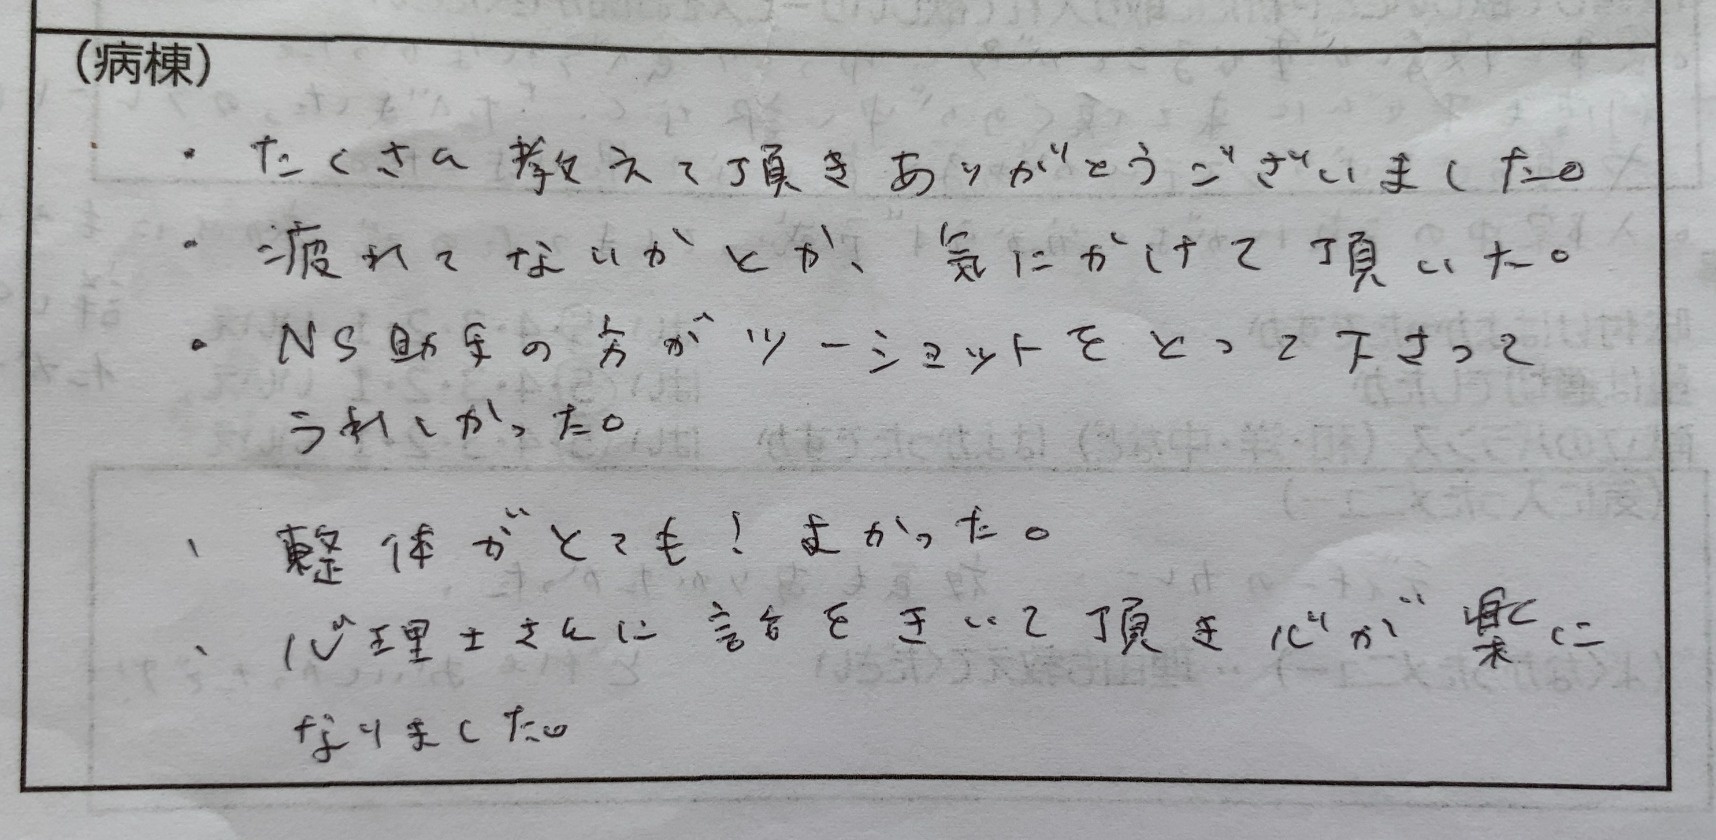 （病棟）
・たくさん教えて頂きありがとうございました。
・疲れてないかとか、気にかけて頂いた。
・NS助手の方がツーショットをとって下さって
うれしかった。
・整体がとても！よかった。
・心理士さんに話をきいて頂き心が楽に
なりました。